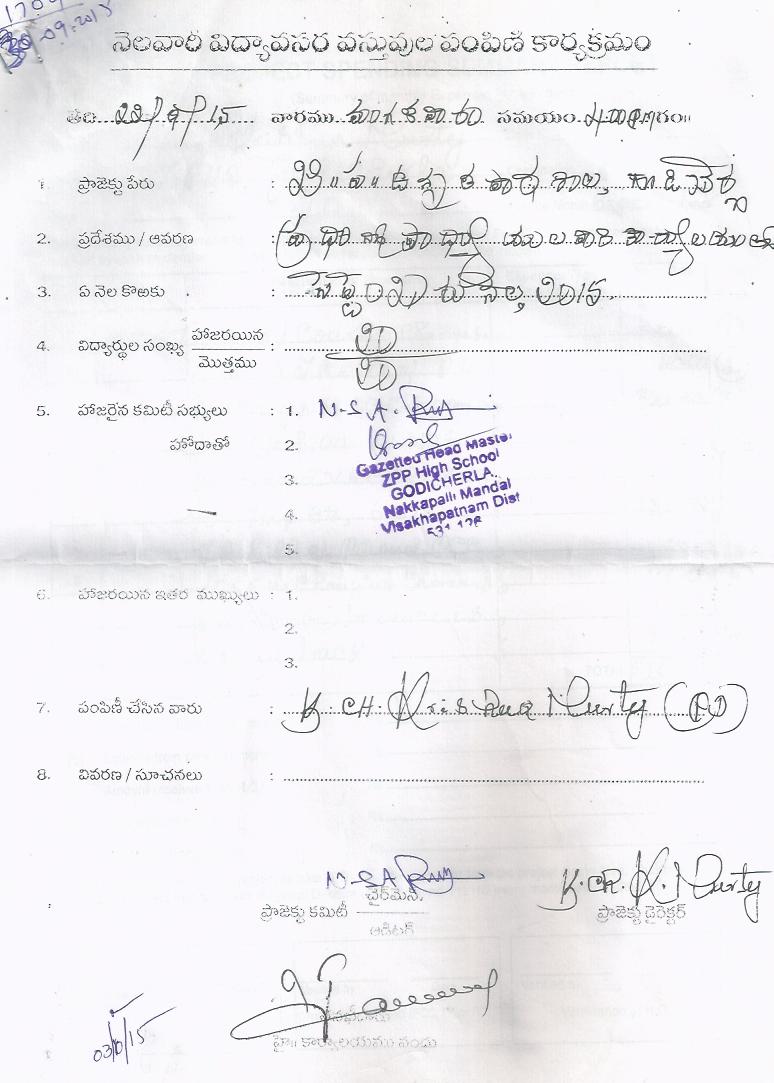 1709
30.09.2015
నెలవారీ విద్యావసర వస్తువుల పంపిణీ కార్యక్రమం
తేది 22/9/15 వారము మంగళవారం సమయం 4.00PM గం॥
1. ప్రాజెక్టు పేరు : జి॥ప॥ ఉన్నత పాఠశాల, గొడిచెర్ల
2. ప్రదేశము / ఆవరణ : ప్రధానోపాధ్యాయుల వారి కార్యాలయంలో
3. ఏ నెల కొఱకు : సెప్టెంబరు నెల, 2015.
4. విద్యార్థుల సంఖ్య హాజరయిన
మొత్తము :
5. హాజరైన కమిటీ సభ్యులు : 1. N.S.A. Raju
హోదాతో 2.
Gazetted Head Master
ZPP High School
3.
GODICHERLA.
Nakkapalli Mandal
4.
Visakhapatnam Dist
531 126
5.
6. హాజరయిన ఇతర ముఖ్యులు : 1.
2.
3.
7. పంపిణీ చేసిన వారు : K. CH. Krishna Murty (PD)
8. వివరణ / సూచనలు :
N.S.A Raju K. CH. K. Murty
ప్రాజెక్టు కమిటీ చైర్‌మెన్ ప్రాజెక్టు డైరెక్టర్
ఆడిటర్
03/10/15
హై॥ కార్యాలయము నందు